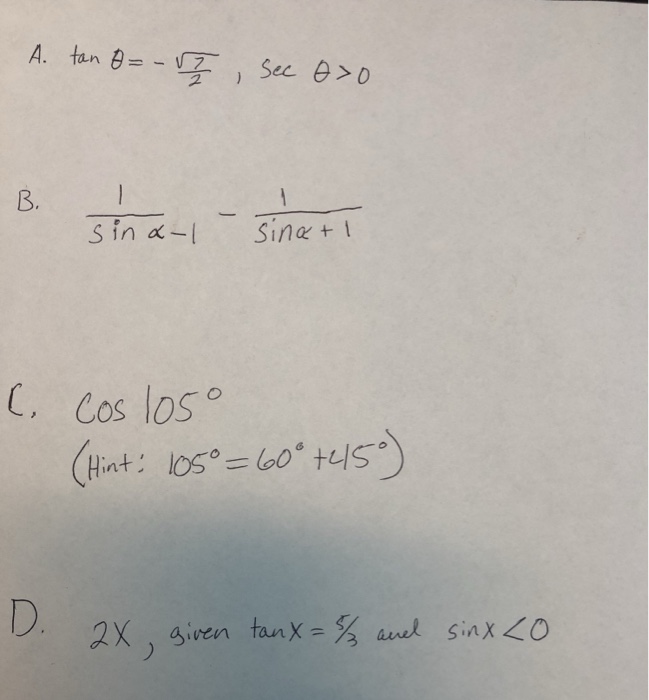 A. tan θ = - √7/2 , Sec θ > 0
B. 1/(sin α - 1) - 1/(sin α + 1)
C. Cos 105°
(Hint: 105° = 60° + 45°)
D. 2X, given tan X = 5/3 and sin X < 0